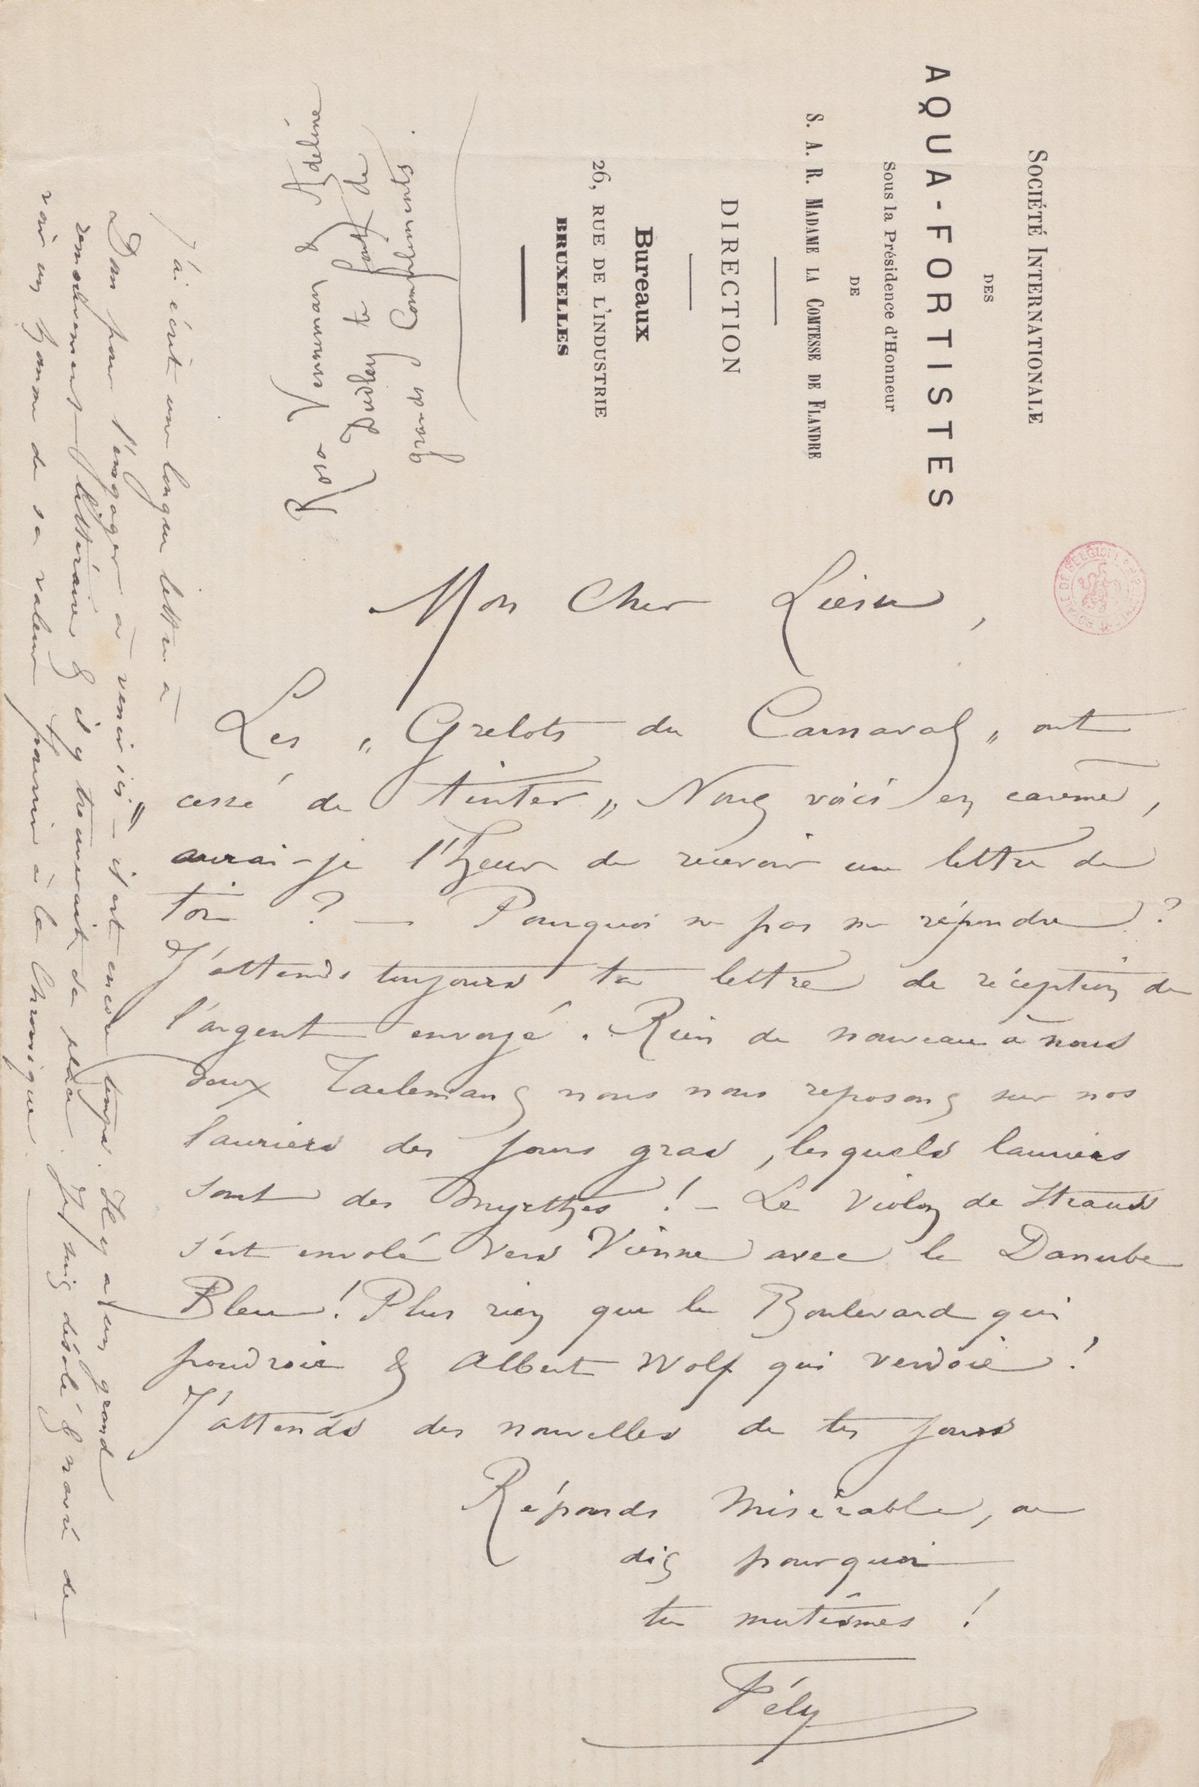 SOCIÉTÉ INTERNATIONALE
DES
AQUA-FORTISTES
Sous la Présidence d'Honneur
DE
S. A. R. MADAME LA COMTESSE DE FLANDRE
DIRECTION
Bureaux
26, RUE DE L'INDUSTRIE
BRUXELLES
Mon Cher Liesse,
Les „ Grelots du Carnaval „ ont
cessé de tinter „ Nous voici en carème,
aurai-je l'heur de recevoir une lettre de
toi ? — Pourquoi ne pas me répondre ?
J'attends toujours ta lettre de réception de
l'argent envoyé. Rien de nouveau à nous
deux Taelemans nous nous reposons sur nos
lauriers des jours gras, lesquels lauriers
sont des myrthes ! — Le Violon de Strauss
s'est envolé vers Vienne avec le Danube
Bleu ! Plus rien que le Boulevard qui
poudroie & Albert Wolf qui verdoie !
J'attends des nouvelles de tes jours
Réponds Misérable, ou
dis pourquoi
tu mutismes !
Fély
Dudlay te font de
grands Compliments.
J'ai écrit une longue lettre à
Dom pour l'engager à venir ici — il est encore temps. Il y a un grand
remuement littéraire & il y trouverait sa place. Je suis désolé & navré de
voir un homme de sa valeur fournir à la Chronique.